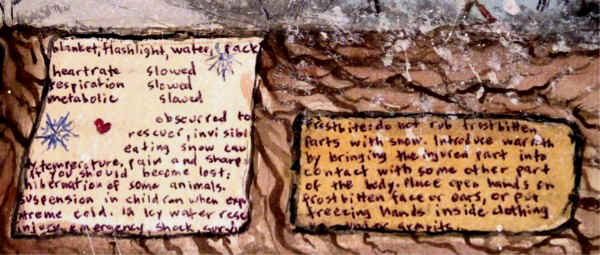 blanket, flashlight, water, pack
heartrate slowed
respiration slowed
metabolic slowed
obscurred to
rescuer, invisibl
eating snow cau
temperature, rain and sharp
if you should become lost:
hibernation of some animals.
suspension in children when exp
xtreme cold. In icy water resc
injury, emergency, shock, surviv
Frostbite: do not rub frostbitten
parts with snow. Introduce warmth
by bringing the injured part into
contact with some other part
of the body. Place open hands on
frostbitten face or ears, or put
freezing hands inside clothing